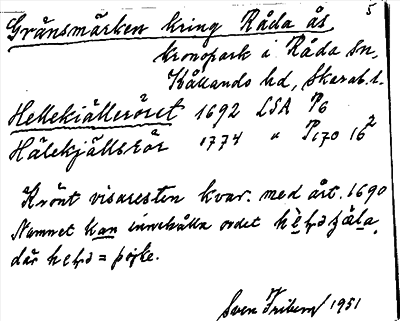 5
Gränsmärken kring Råda ås
kronopark i Råda sn,
Kållands hd, Skarab. l.
Hellekjälleröret 1692 LSA P6
Hälekjällskär 1774 " P170 16²
Krönt visaresten kvar. med årt. 1690
Namnet kan innehålla ordet
där = pojke.
Sven Friberg 1951